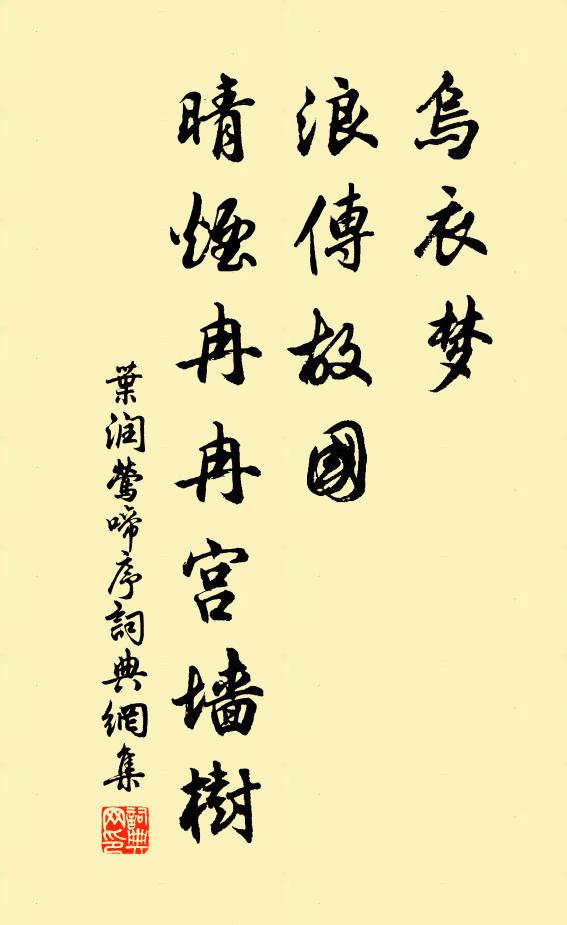 烏衣梦
浪傳故國
晴煙冉冉宫墻樹
葉润鶯啼序詞典網集
詞典网印